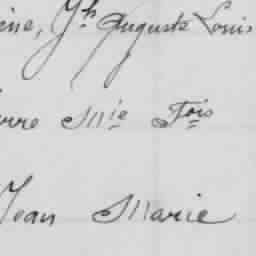 ène, Jh Auguste Louis
erre Mie Fois
Jean Marie